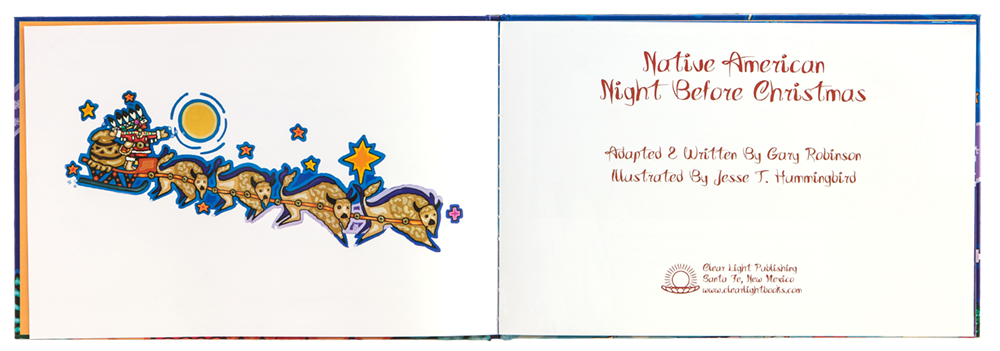 Native American
Night Before Christmas
Adapted & Written By Gary Robinson
Illustrated By Jesse T. Hummingbird
Clear Light Publishing
Santa Fe, New Mexico
www.clearlightbooks.com